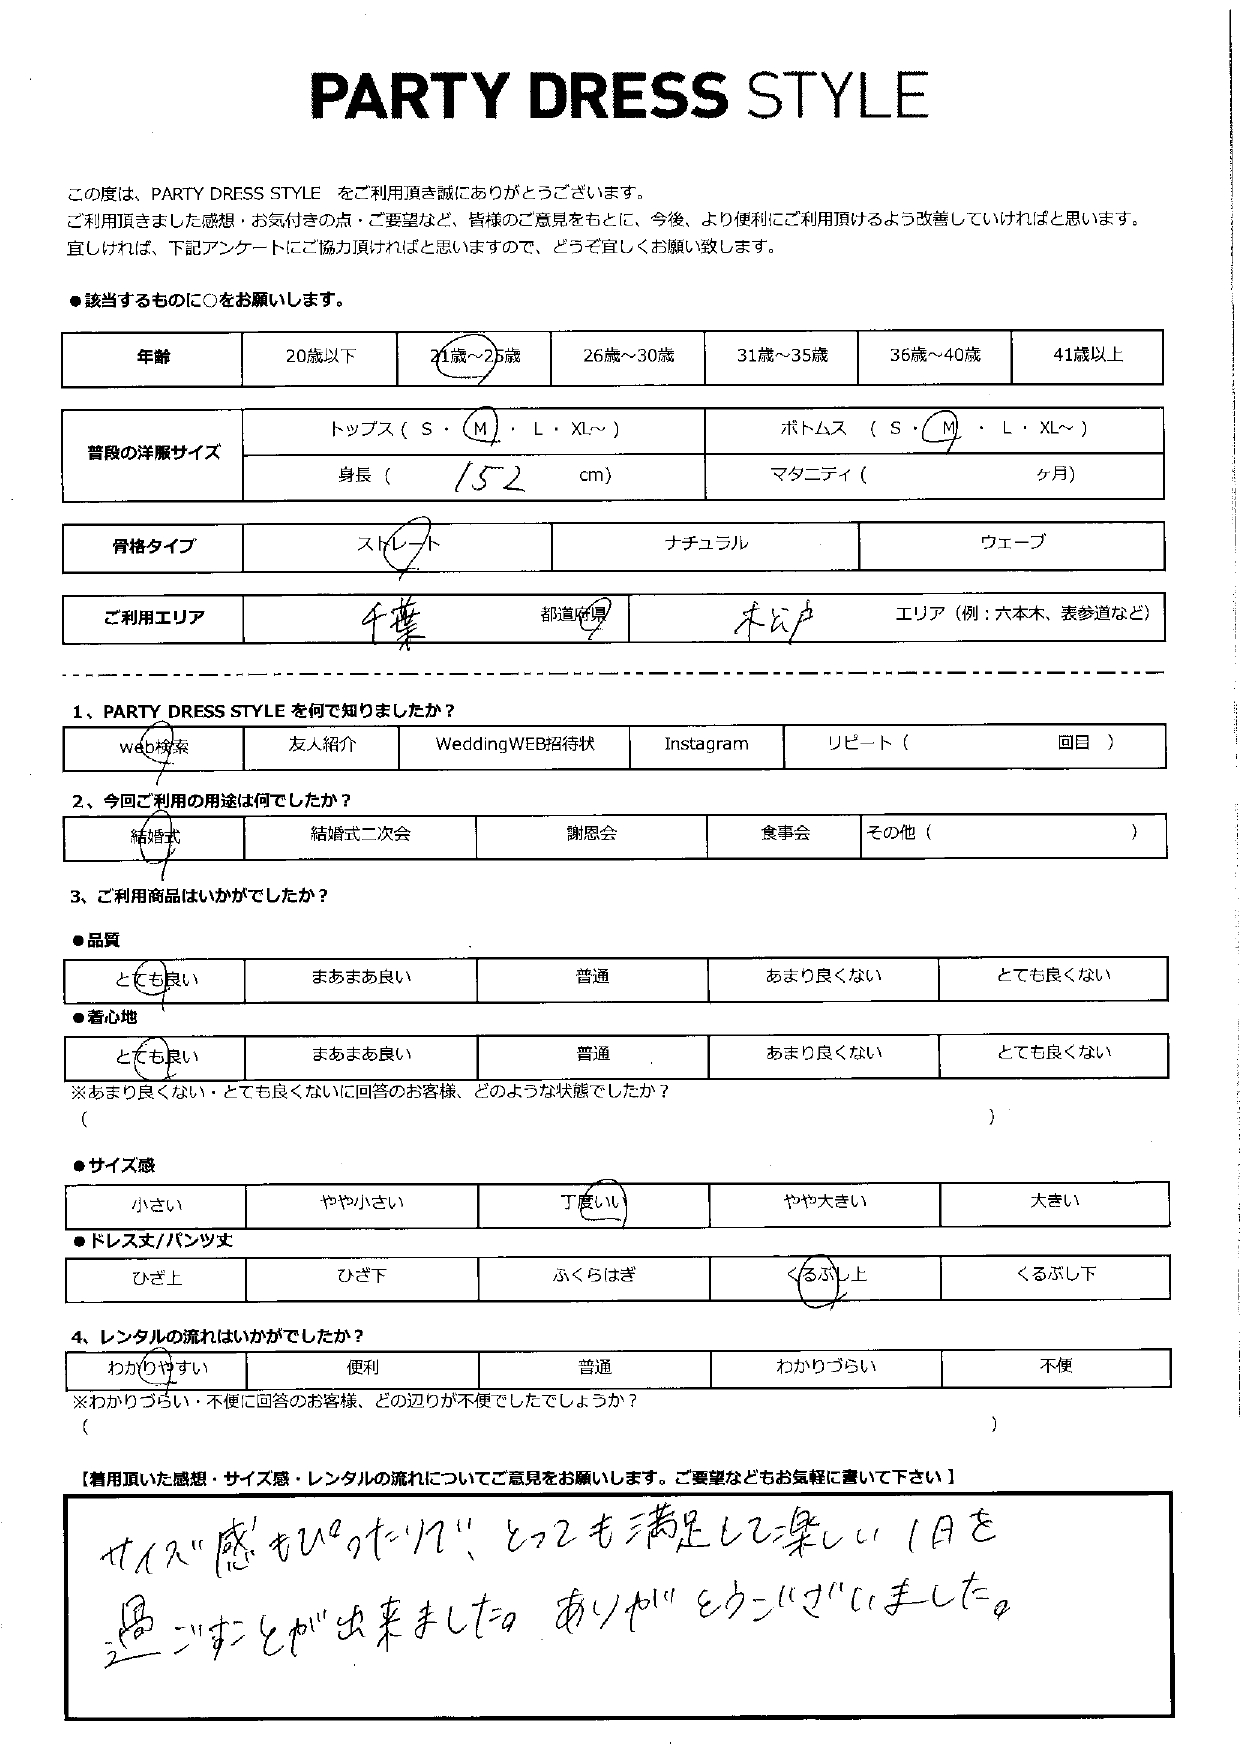 PARTY DRESS STYLE
この度は、PARTY DRESS STYLE をご利用頂き誠にありがとうございます。
ご利用頂きました感想・お気付きの点・ご要望など、皆様のご意見をもとに、今後、より便利にご利用頂けるよう改善していければと思います。
宜しければ、下記アンケートにご協力頂ければと思いますので、どうぞ宜しくお願い致します。
●該当するものに○をお願いします。
年齢 20歳以下 21歳～25歳 26歳～30歳 31歳～35歳 36歳～40歳 41歳以上
普段の洋服サイズ トップス ( S ・ M ・ L ・ XL～ ) ボトムス ( S ・ M ・ L ・ XL～ )
身長 ( 152 cm) マタニティ ( ヶ月)
骨格タイプ ストレート ナチュラル ウェーブ
ご利用エリア 千葉 都道府県 松戸 エリア（例：六本木、表参道など）
1、PARTY DRESS STYLE を何で知りましたか？
web検索 友人紹介 WeddingWEB招待状 Instagram リピート ( 回目 )
2、今回ご利用の用途は何でしたか？
結婚式 結婚式二次会 謝恩会 食事会 その他 ( )
3、ご利用商品はいかがでしたか？
●品質
とても良い まあまあ良い 普通 あまり良くない とても良くない
●着心地
とても良い まあまあ良い 普通 あまり良くない とても良くない
※あまり良くない・とても良くないに回答のお客様、どのような状態でしたか？
( )
●サイズ感
小さい やや小さい 丁度いい やや大きい 大きい
●ドレス丈/パンツ丈
ひざ上 ひざ下 ふくらはぎ くるぶし上 くるぶし下
4、レンタルの流れはいかがでしたか？
わかりやすい 便利 普通 わかりづらい 不便
※わかりづらい・不便に回答のお客様、どの辺りが不便でしたでしょうか？
( )
【着用頂いた感想・サイズ感・レンタルの流れについてご意見をお願いします。ご要望などもお気軽に書いて下さい】
サイズ感もぴったりで、とっても満足して楽しい1日を
過ごすことが出来ました。ありがとうございました。